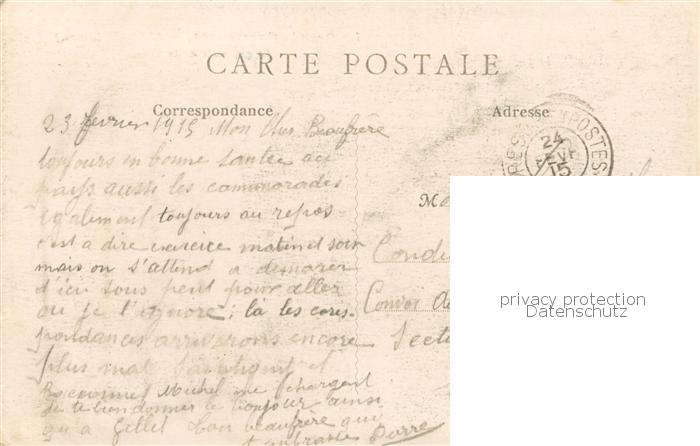 CARTE POSTALE
Correspondance
Adresse
POSTES
24
15
23 fevrier 1915 Mon Cher Beaufrère
toujours en bonne santée au
pays aussi les cammarades
egalement toujours au repos
c'est a dire exercice matin et soir
mais on s'attend a démarer
d'ici sous peut pour aller
ou je l'ignore; la les corres-
pondances arriverons encore
plus mal
Michel me chargent
de te bien donner le bonjour ainsi
qu'a Gillet ton beaufrère qui
t'embrasse Pierre
Condu
Convoi
Secte
privacy protection
Datenschutz